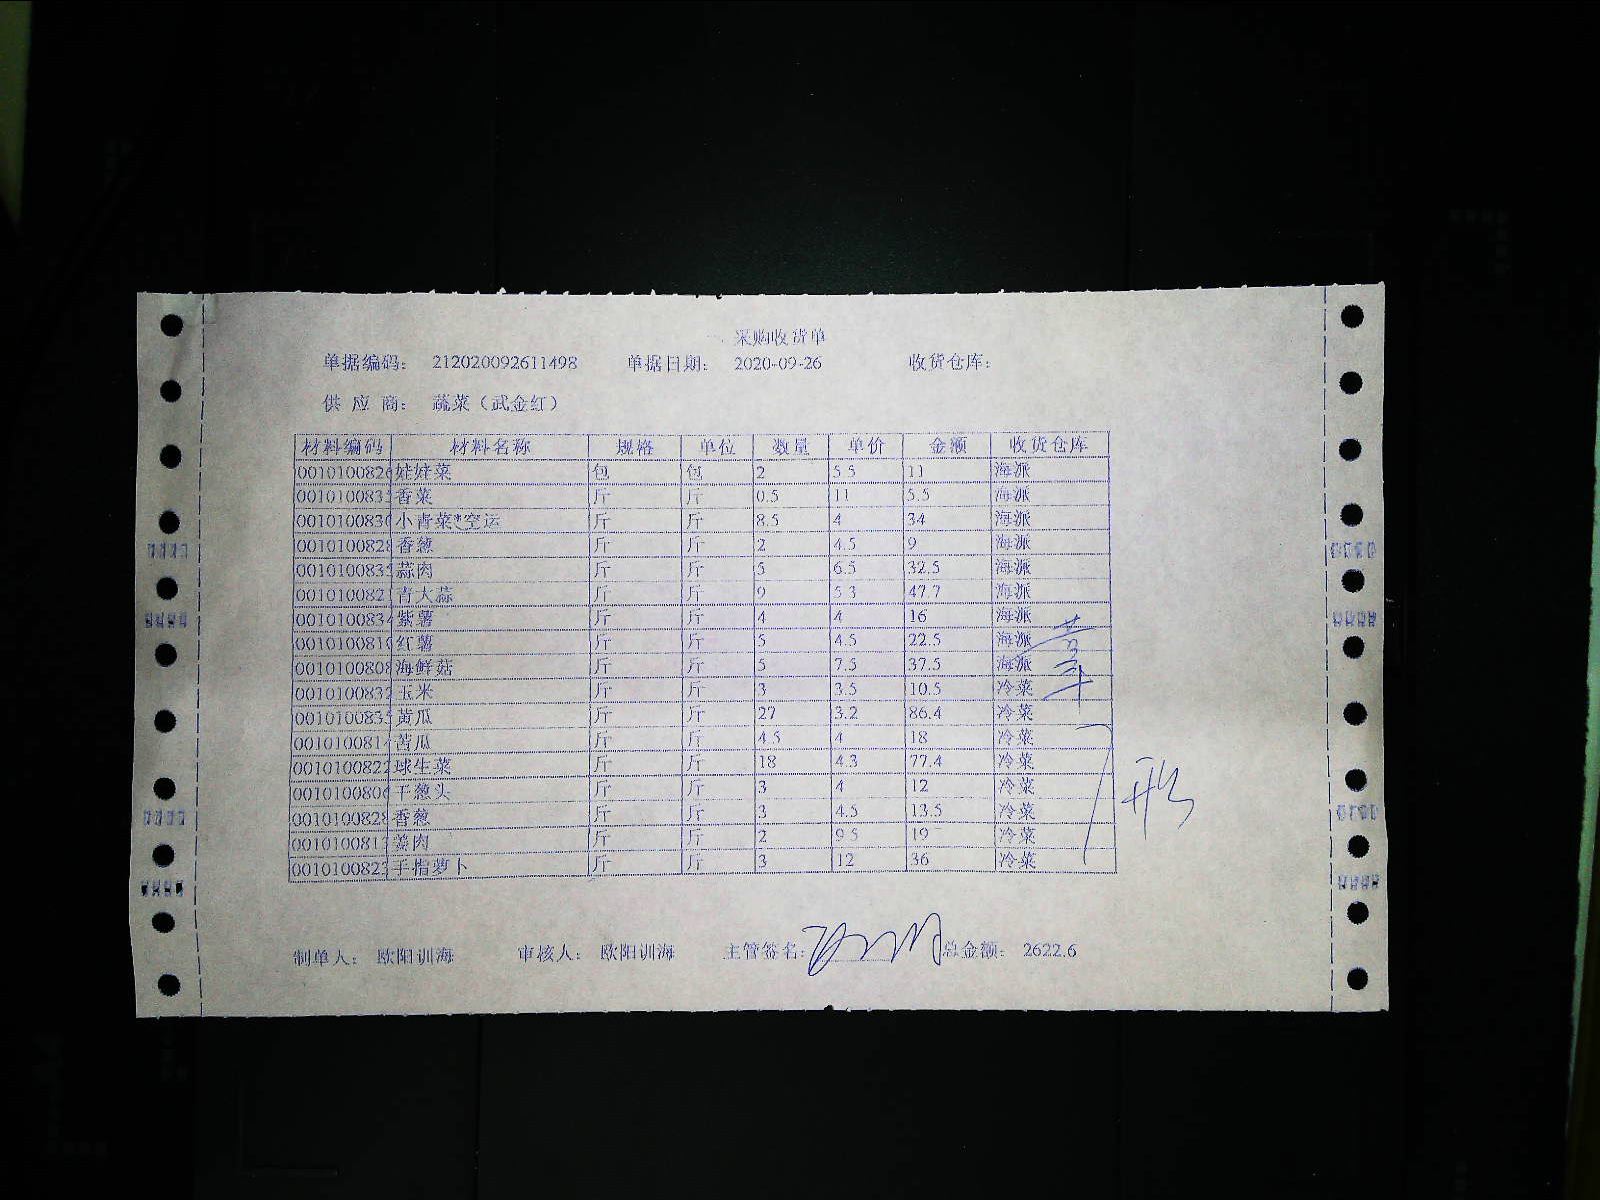 采购收货单
单据编码： 212020092611498 单据日期： 2020-09-26 收货仓库：
供 应 商： 蔬菜（武金红）
材料编码 材料名称 规格 单位 数量 单价 金额 收货仓库
0010100826 娃娃菜 包 包 2 5.5 11 海派
001010083 香菜 斤 斤 0.5 11 5.5 海派
0010100830 小青菜*空运 斤 斤 8.5 4 34 海派
0010100828 香葱 斤 斤 2 4.5 9 海派
001010083 蒜肉 斤 斤 5 6.5 32.5 海派
001010082 青大蒜 斤 斤 9 5.3 47.7 海派
0010100834 紫薯 斤 斤 4 4 16 海派
0010100810 红薯 斤 斤 5 4.5 22.5 海派
0010100808 海鲜菇 斤 斤 5 7.5 37.5 海派
0010100832 玉米 斤 斤 3 3.5 10.5 冷菜
001010083 黄瓜 斤 斤 27 3.2 86.4 冷菜
001010081 苦瓜 斤 斤 4.5 4 18 冷菜
0010100822 球生菜 斤 斤 18 4.3 77.4 冷菜
0010100806 干葱头 斤 斤 3 4 12 冷菜
0010100828 香葱 斤 斤 3 4.5 13.5 冷菜
001010081 姜肉 斤 斤 2 9.5 19 冷菜
001010082 手指萝卜 斤 斤 3 12 36 冷菜
制单人： 欧阳训海 审核人： 欧阳训海 主管签名： 总金额： 2622.6